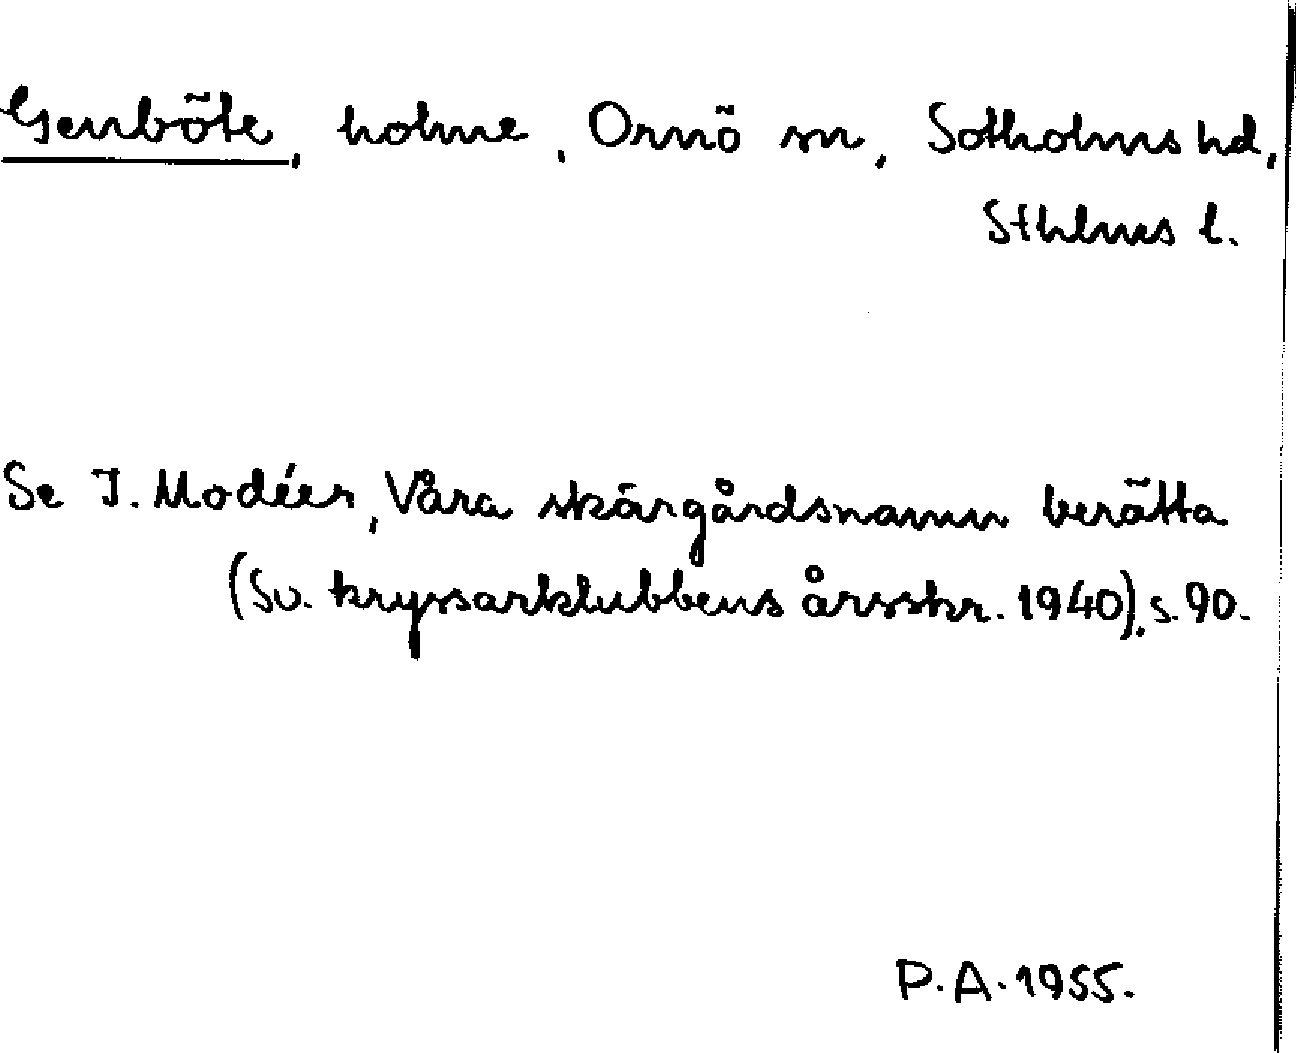 Genböte, holme, Ornö sn, Sotholms hd,
Sthlms l.
Se I. Modéer, Våra skärgårdsnamn berätta
(Sv. kryssarklubbens årsskr. 1940), s. 90.
P.A. 1955.